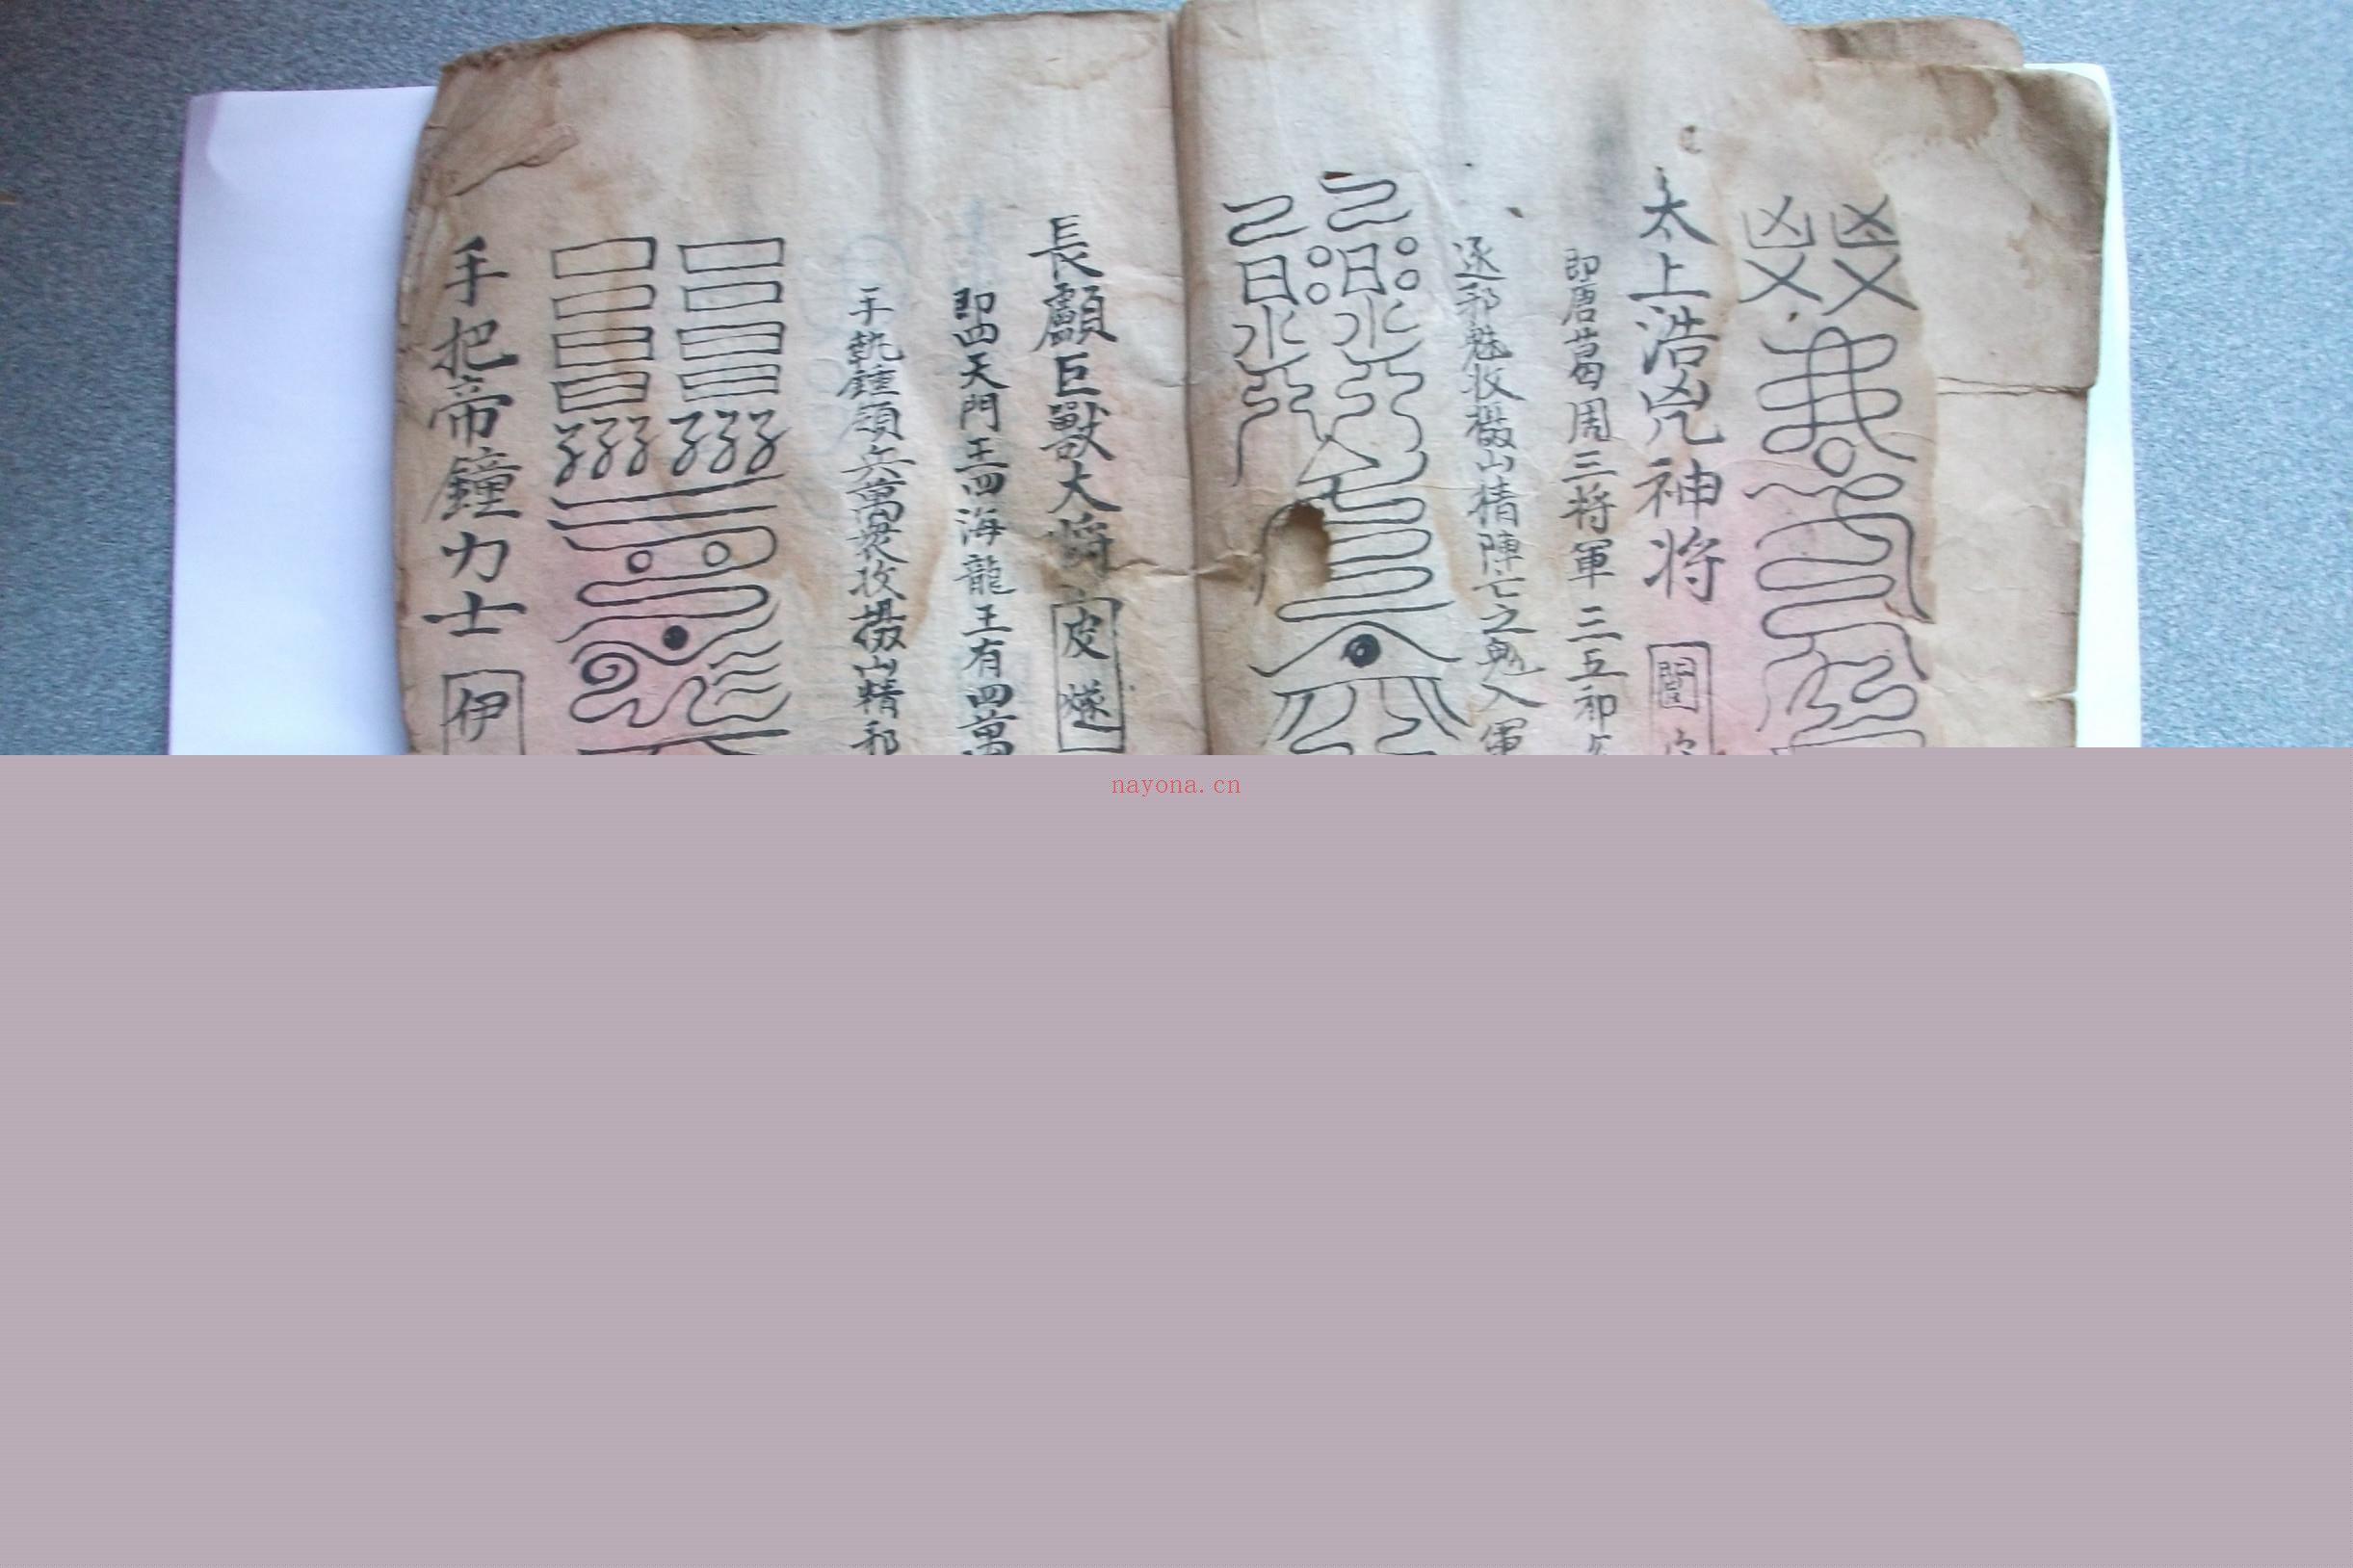 太上浩兇神将
即唐葛周三将軍三五和
逐邪魁收攝山精陣亡之鬼入軍
長顱巨獸大將 皮燧
即四天門王四海龍王有四萬
手執鍾領兵萬衆收攝山精邪
手把帝鐘力士 伊
nayona.cn